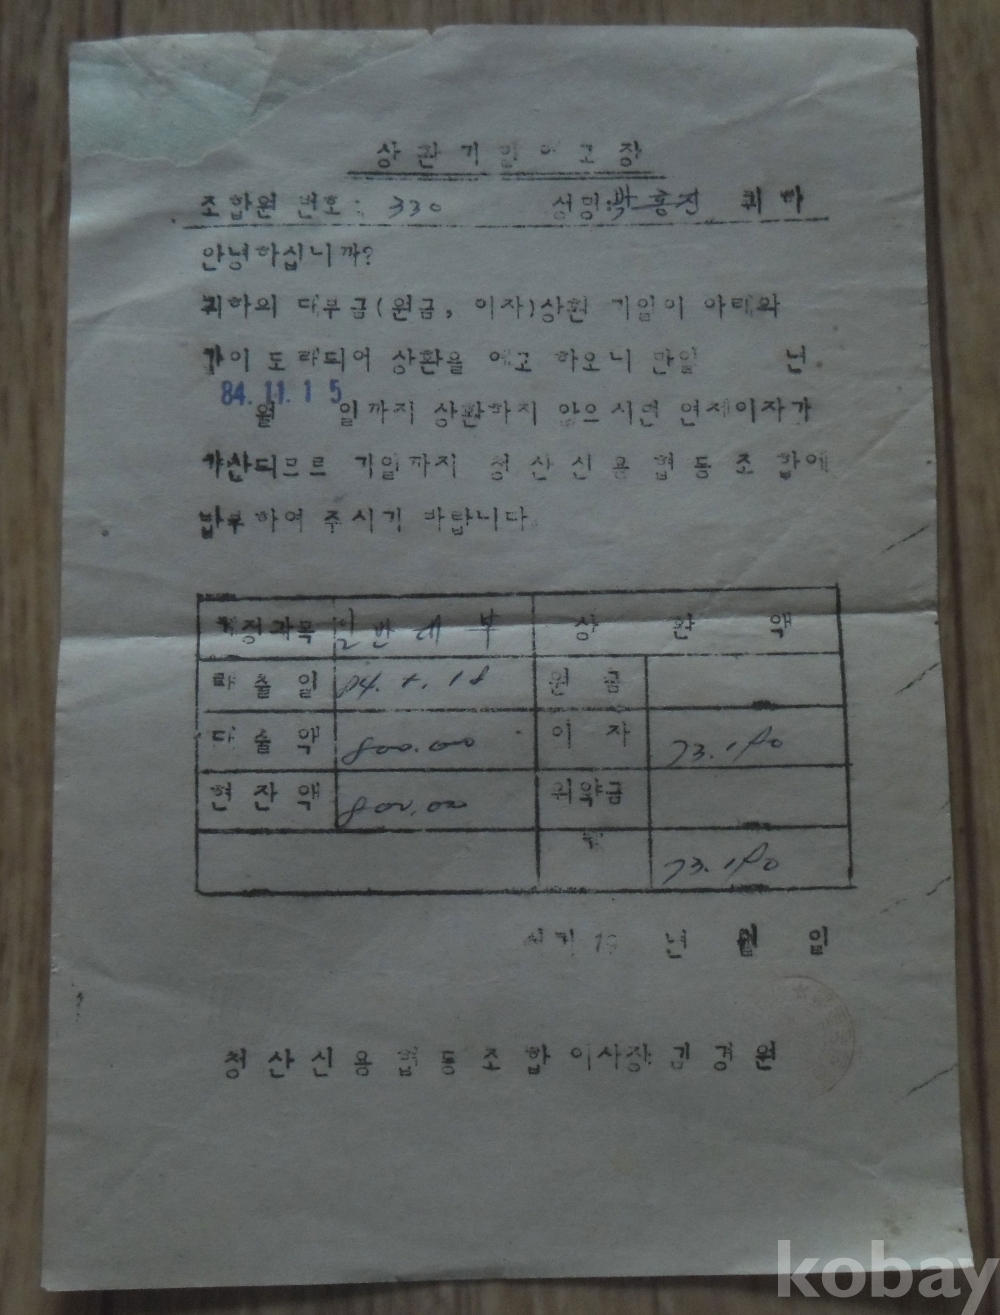 상환기일예고장
조합원 번호: 330 성명: 박흥진 귀하
안녕하십니까?
귀하의 대부금(원금, 이자)상환 기일이 아래와
같이 도래되어 상환을 예고 하오니 만일 년
84.11.15
월 일까지 상환하지 않으시면 연체이자가
가산되므로 기일까지 청산신용협동조합에
납부하여 주시기 바랍니다.
계정과목 일반대부 상환액
대출일 84. 18 원금
대출액 800.00 이자 73.180
현잔액 800.00 위약금
73.180
서기 19 년 월 일
청산신용협동조합이사장김경원
kobay